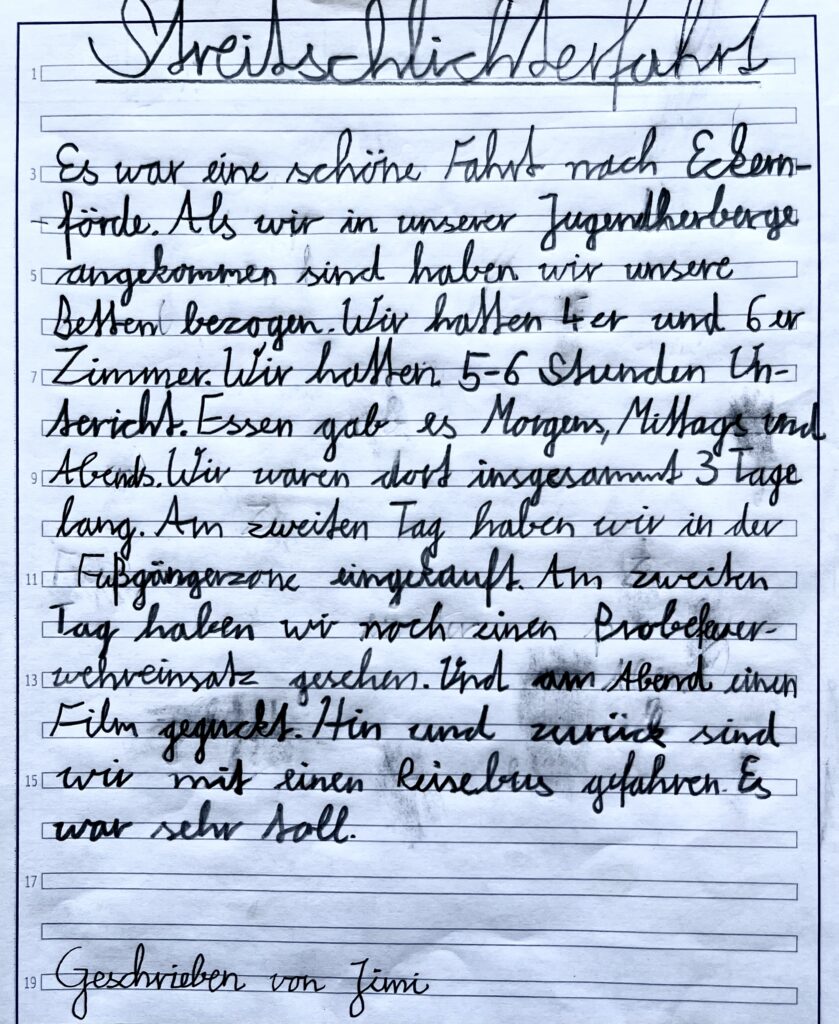 Streitschlichterfahrt
1
3 Es war eine schöne Fahrt nach Eckern-
förde. Als wir in unserer Jugendherberge
5 angekommen sind haben wir unsere
Betten bezogen. Wir hatten 4er und 6er
7 Zimmer. Wir hatten 5-6 Stunden Un-
tericht. Essen gab es Morgens, Mittags und
9 Abends. Wir waren dort insgesammt 3 Tage
lang. Am zweiten Tag haben wir in der
11 Fußgängerzone eingekauft. Am zweiten
Tag haben wir noch einen Probefeuer-
13 wehreinsatz gesehen. Und am Abend einen
Film geguckt. Hin und zurück sind
15 wir mit einen Reisebus gefahren. Es
war sehr toll.
17
19 Geschrieben von Jimi